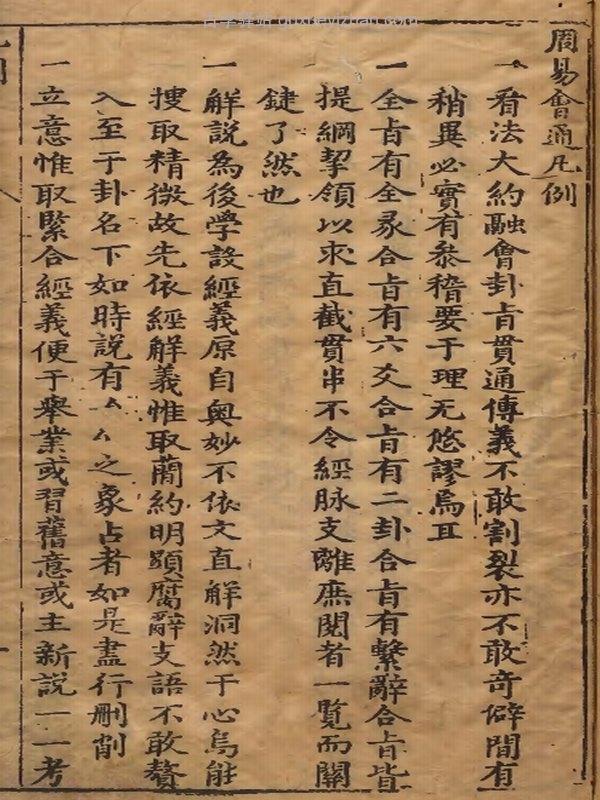 周易會通凡例
一看法大約融會卦㫖貫通傳義不敢割裂亦不敢奇僻間有
稍異必實有叅稽要于理无悠謬焉耳
一全㫖有全彖合㫖有六爻合㫖有二卦合㫖有繫辭合㫖皆
提綱挈領以求直截貫串不令經脉支離庶閱者一覧而關
鍵了然也
一解說為後學設經義原自奥妙不依文直解洞然于心焉能
搜取精微故先依經解義惟取簡約明顕腐辭支語不敢贅
入至于卦名下如時說有厶厶之象占者如是盡行刪削
一立意惟取緊合經義便于舉業或習舊意或主新說一一考